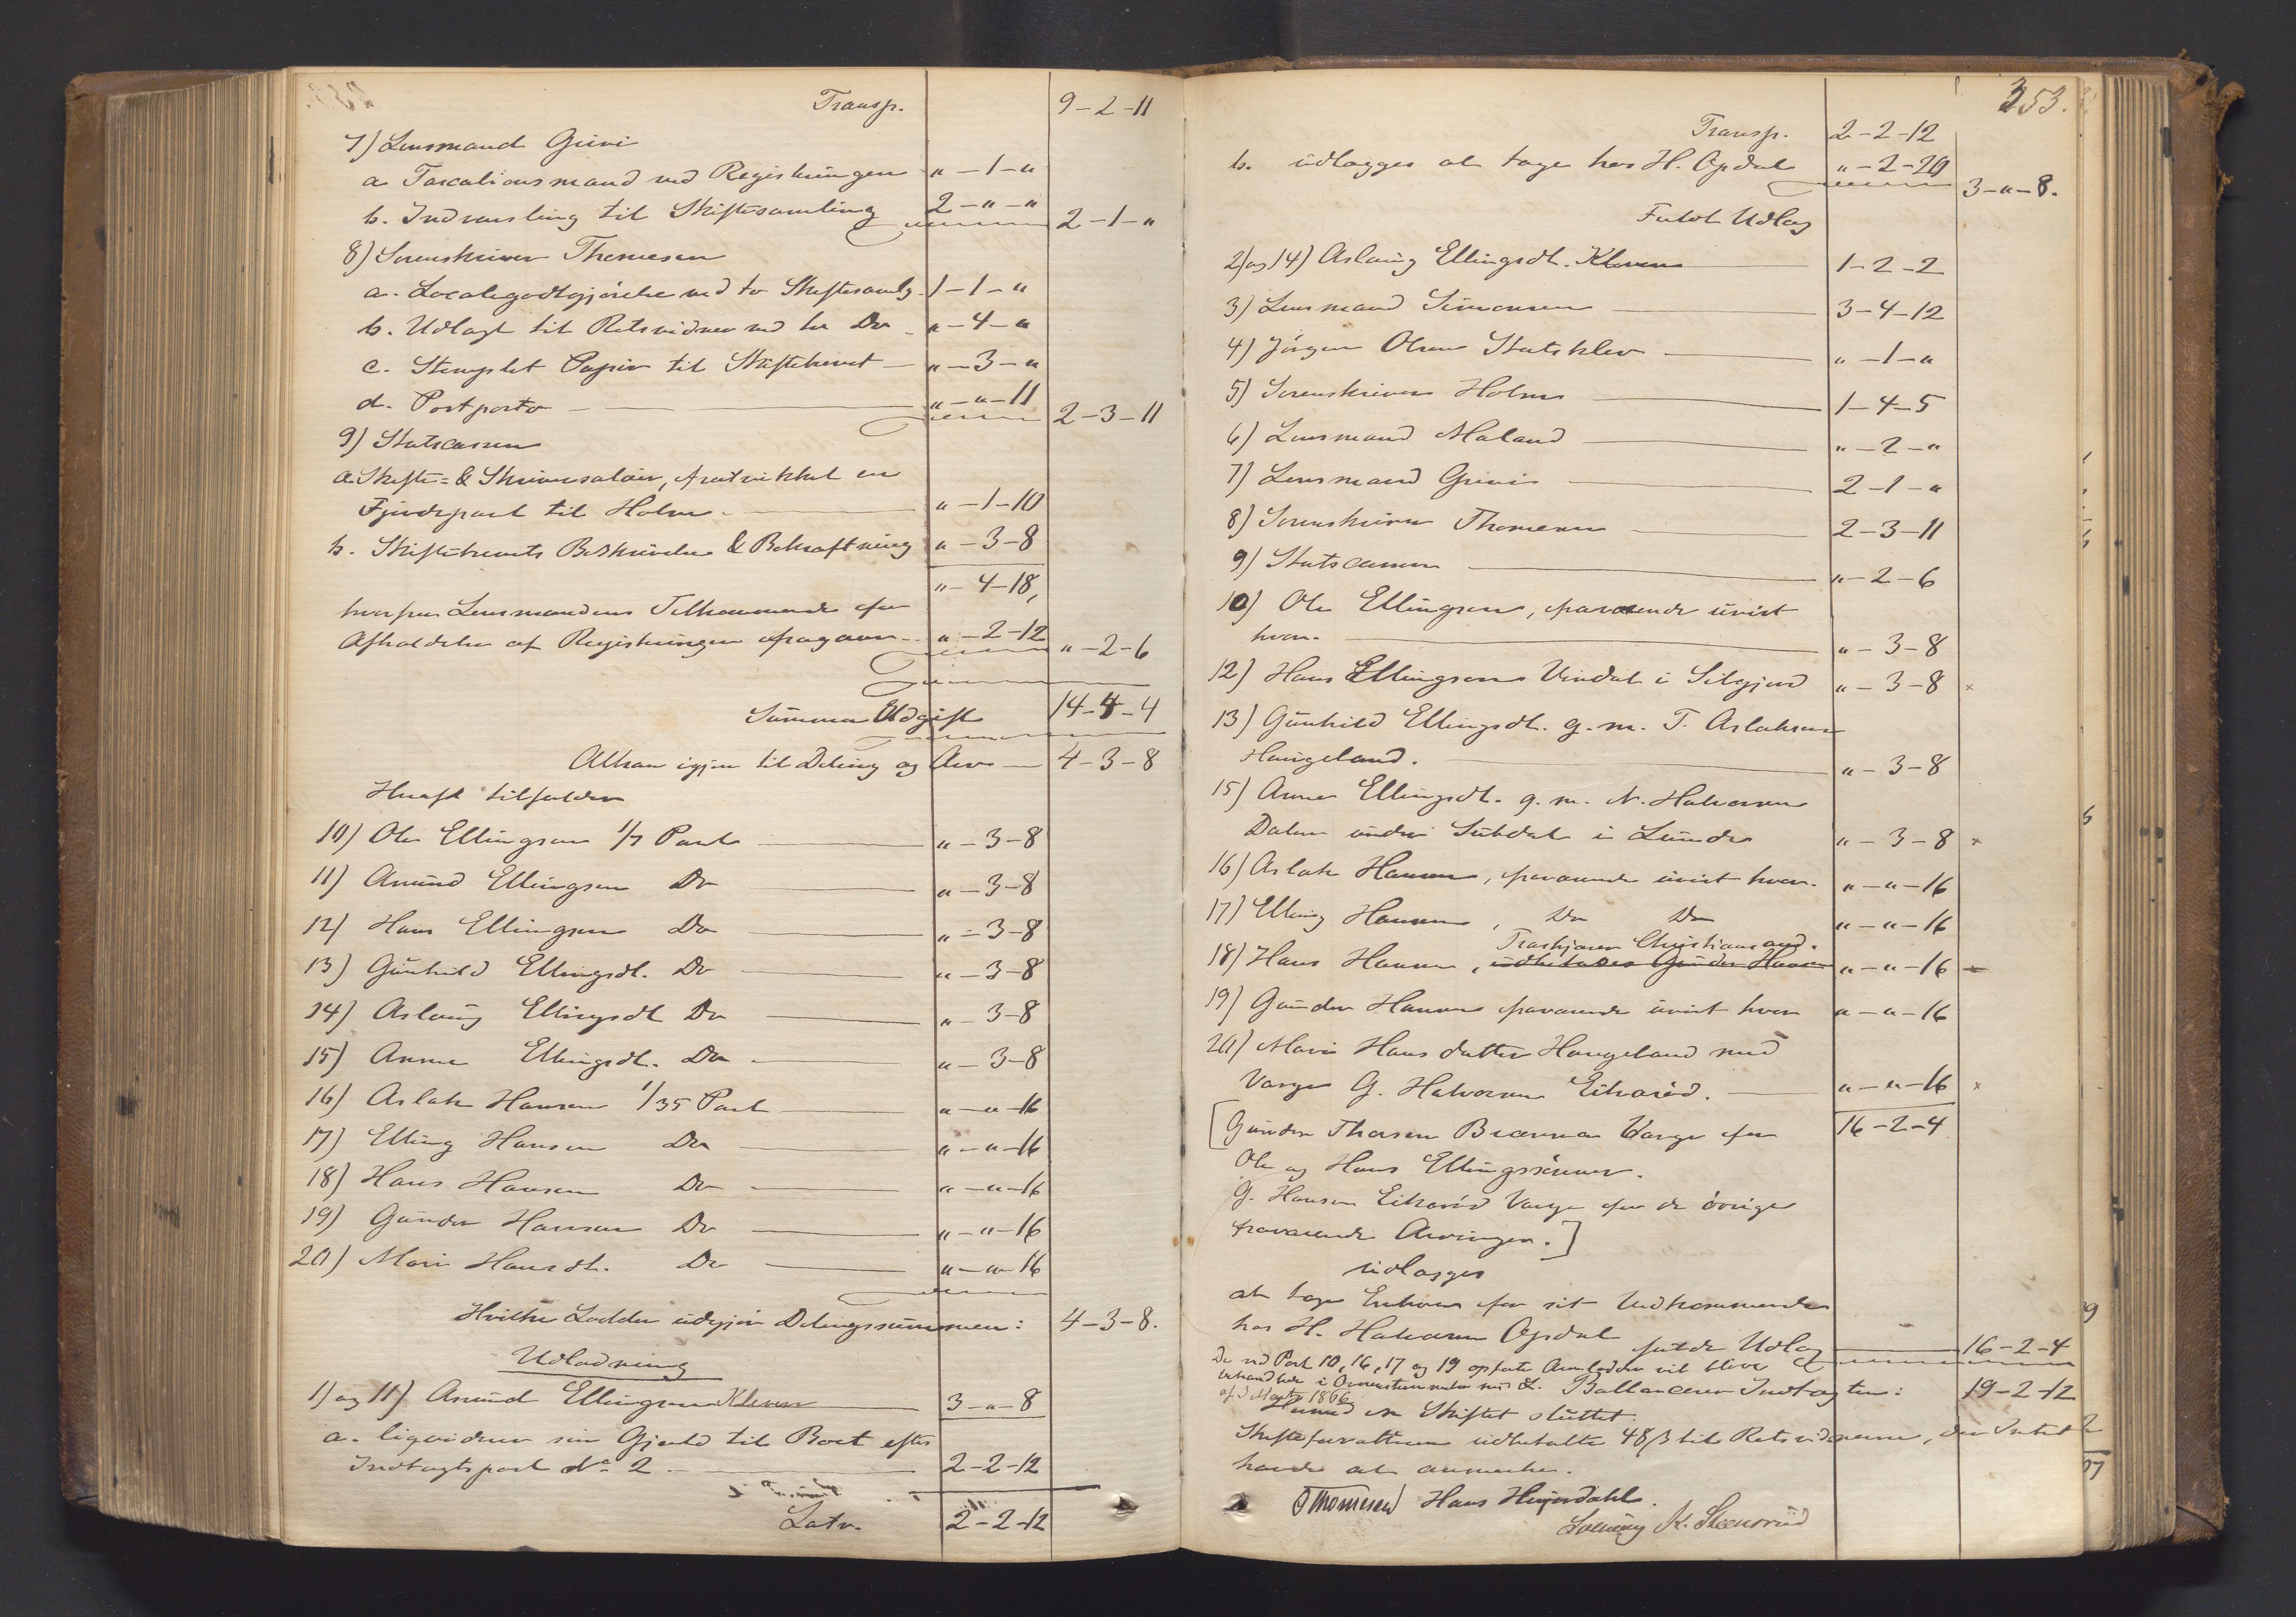 Transp. 9-2-11
7) Lensmand Grini
a Taxationsmand ved Registringen "-1-"
b. Indvarsling til Skiftesamling 2-"-" 2-1-"
8) Sorenskriver Thomesen
a. Localegodtgjörelse ved to Skiftesamlg. 1-1-"
b. Udlagt til Retsvidner ved to Do "-4-"
c. Stemplet Papir til Skiftebrevet "-3-"
d. Postporto "-"-11 2-3-11
9) Statscassen
a. Skifte- & Skriversalair, fradrukket en
Fjerdepart til Holm "-1-10
b. Skiftebrevets Beskrivelse & Bekræftning "-3-8
"-4-18,
hvorfra Lensmandens Tilkommende for
Afholdelse af Registringen afgaaer "-2-12 "-2-6
Summa Udgift 14-4-4
Altsaa igjen til Deling og Arv 4-3-8
Hvoraf tilfalder
10) Ole Ellingsen 1/7 Part "-3-8
11) Anund Ellingsen Do "-3-8
12) Hans Ellingsen Do "-3-8
13) Gunhild Ellingsdt. Do "-3-8
14) Aslaug Ellingsdt Do "-3-8
15) Anne Ellingsdt. Do "-3-8
16) Aslak Hansen 1/35 Part "-"-16
17) Elling Hansen Do "-"-16
18) Hans Hansen Do "-"-16
19) Gunder Hansen Do "-"-16
20) Mari Hansdt. Do "-"-16
Hvilke Lodder udgjör Delingssummen: 4-3-8.
Udlodning
1) og 11) Anund Ellingsen Kleven 3-"-8
a. liqviderer sin Gjæld til Boet efter
Indtægtspost No 2 2-2-12
Latr. 2-2-12
353.
Transp. 2-2-12
b. udlægges at tage hos H. Opdal "-2-20 3-"-8.
Fuldt Udlæg
2) og 14) Aslaug Ellingsdt. Kleven 1-2-2
3) Lensmand Simonsen 3-4-12
4) Jörgen Olsen Statsklev "-1-"
5) Sorenskriver Holm 1-4-5
6) Lensmand Moland "-2-"
7) Lensmand Grini 2-1-"
8) Sorenskriver Thomesen 2-3-11
9) Statscassen "-2-6
10) Ole Ellingsen, fraværende uvist
hvor. "-3-8
12) Hans Ellingsen Vindal i Silgjord "-3-8 x
13) Gunhild Ellingsdt. g. m. T. Aslaksen
Haugeland. "-3-8
15) Anne Ellingsdt. g. m. N. Halvorsen
Dalen under Subdal i Lunde "-3-8 x
16) Aslak Hansen, fraværende uvist hvor. "-"-16
17) Elling Hansen, Do Do "-"-16
Christiansand.
18) Hans Hansen, udbetales Gunder Hansen "-"-16 x
19) Gunder Hansen fraværende uvist hvor "-"-16
20) Mari Hansdatter Haugeland med
Værge G. Halvorsen Eikeröd. "-"-16 x
[Gunder Thorsen Værge for 16-2-4
Ole og Hans Ellingssönner.
G. Hansen Eikeröd Værge for de övrige
fraværende Arvinger.]
udlægges
at tage Enhver for sit Vedkommende
hos H. Halvorsen Opdal
fulde Udlæg 16-2-4
De ved Post 10, 16, 17 og 19 opførte Arvelodder vil blive
behandlede i Overensstemmelse med L.
af 3 Marts 1866
Ballancerer Indtægten: 19-2-12
Hermed er Skiftet sluttet.
Skifteforvalteren udbetalte 48 ß til Retsvidnerne, der Intet
havde at anmærke.
Thomesen Hans Heierdahl.
K. Steensrud